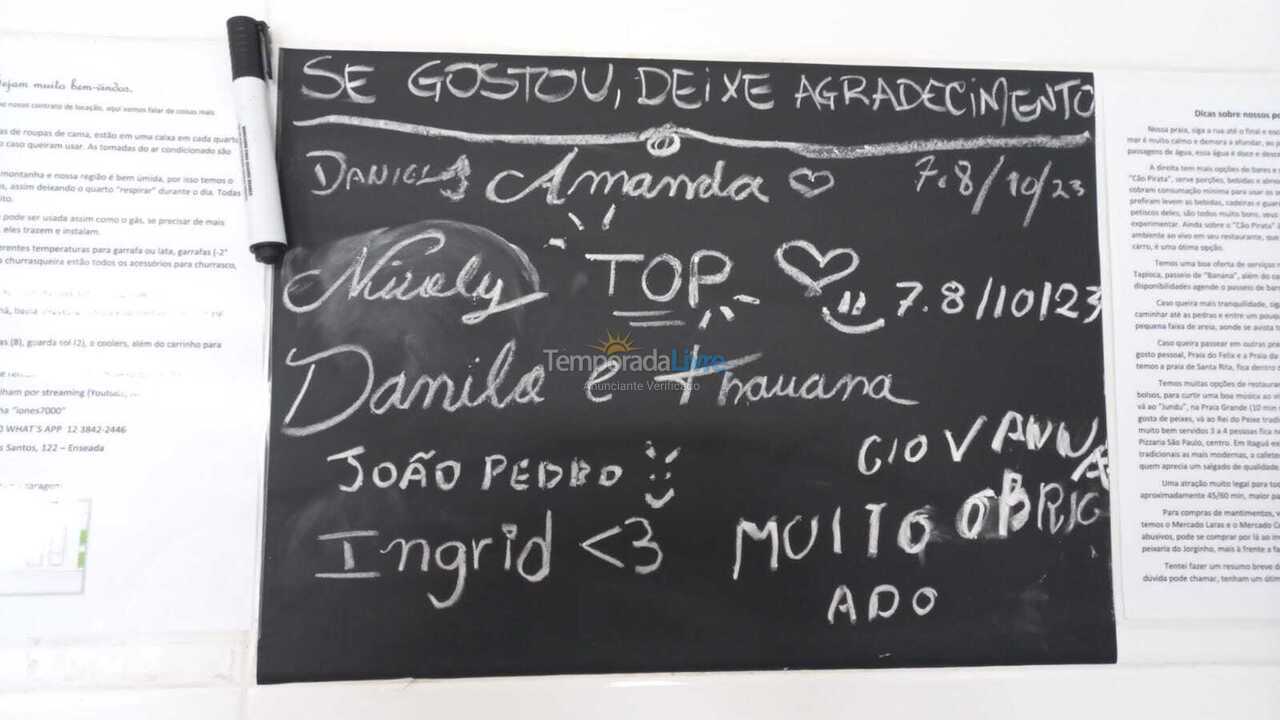 SE GOSTOU, DEIXE AGRADECIMENTO
DANIELA Amanda ♡ 7.8/10/23
Nicoly TOP ♡ 7.8/10/23
Danilo e Thauana
JOÃO PEDRO :)
GIOVANNA
Ingrid <3
MUITO OBRIG
ADO
TemporadaLivre
Anunciante Verificado
ejam muito bem-vindos.
nosso contrato de locação, aqui vamos falar de coisas mais
as de roupas de cama, estão em uma caixa em cada quarto
caso queiram usar. As tomadas do ar condicionado são
montanha e nossa região é bem úmida, por isso temos o
s, assim deixando o quarto "respirar" durante o dia. Todas
ito.
pode ser usada assim como o gás, se precisar de mais
eles trazem e instalam.
erentes temperaturas para garrafa ou lata, garrafas (-2°
churrasqueira estão todos os acessórios para churrasco,
as (8), guarda sol (2), o coolers, além do carrinho para
lham por streaming (Youtube,
ha "iones7000"
O WHAT´S APP 12 3842-2446
s Santos, 122 – Enseada
Dicas sobre nossos po
Nossa praia, siga a rua até o final e
mar é muito calmo e demora a afundar, ao
passagens de água, essa água é doce e
A direita tem mais opções de bares e
"Cão Pirata", serve porções, bebidas e
cobram consumação mínima para usar os
prefiram levem as bebidas, cadeiras e
petiscos deles, são todos muito bons,
experimentar. Ainda sobre o "Cão Pirata"
ambiente ao vivo em seu restaurante, que
carro, é uma ótima opção.
Temos uma boa oferta de serviços
Tapioca, passeio de "Banana", além do
disponibilidades agende o passeio de
Caso queira mais tranquilidade,
caminhar até as pedras e entre um
pequena faixa de areia, aonde se avista
Caso queira passear em outras
gosto pessoal, Praia do Felix e a Praia da
temos a praia de Santa Rita, fica dentro
Temos muitas opções de
bolsos, para curtir uma boa música ao
vá ao "Jundu", na Praia Grande (10 min
gosta de peixes, vá ao Rei do Peixe
muito bem servidos 3 a 4 pessoas fica
Pizzaria São Paulo, centro. Em Itaguá
tradicionais as mais modernas, a
quem aprecia um salgado de qualidade
Uma atração muito legal para
aproximadamente 45/60 min, maior
Para compras de mantimentos,
temos o Mercado Laras e o Mercado
abusivos, pode se comprar por lá ao
peixaria do Jorginho, mais à frente a
Tentei fazer um resumo breve
dúvida pode chamar, tenham um